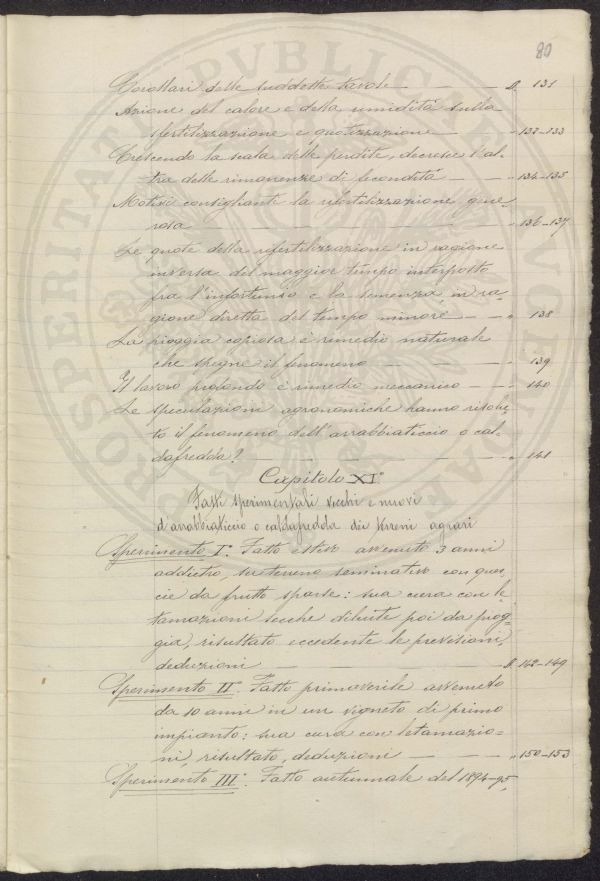 80
Corollari delle suddette tavole — p. 131
Azione del calore e della umidità sulla
sfertilizzazione e quotizzazione — " 132-133
Crescendo la scala delle perdite, decresce l'al-
tra delle rimanenze di fecondità — " 134-135
Motivi consiglianti la rifertilizzazione gene-
rosa — " 136-137
Le quote della rifertilizzazione in ragione
inversa del maggior tempo interposto
fra l'infortunio e la semenza in ra-
gione diretta del tempo minore — " 138
La pioggia copiosa è rimedio naturale
che spegne il fenomeno — " 139
Il lavoro profondo è rimedio meccanico — " 140
Le speculazioni agronomiche hanno risolu-
to il fenomeno dell'arrabbiaticcio o cal-
dafredda? — " 141
Capitolo XI°
Fatti sperimentali vecchi e nuovi
d'arrabbiaticcio o caldafredda dei terreni agrari
Sperimento I°. Fatto estivo avvenuto 3 anni
addietro, su terreno seminativo con quer-
cie da frutto sparse: sua cura con le-
tamazioni secche diluite poi da piog-
gia, risultato eccedente le previsioni,
deduzioni — p. 142-149
Sperimento II°. Fatto primaverile avvenuto
da 10 anni in un vigneto di primo
impianto: sua cura con letamazio-
ni, risultato, deduzioni — " 150-153
Sperimento III°. Fatto autunnale del 1894-95,
PROSPERITATI PVBLICAE AVGENDAE